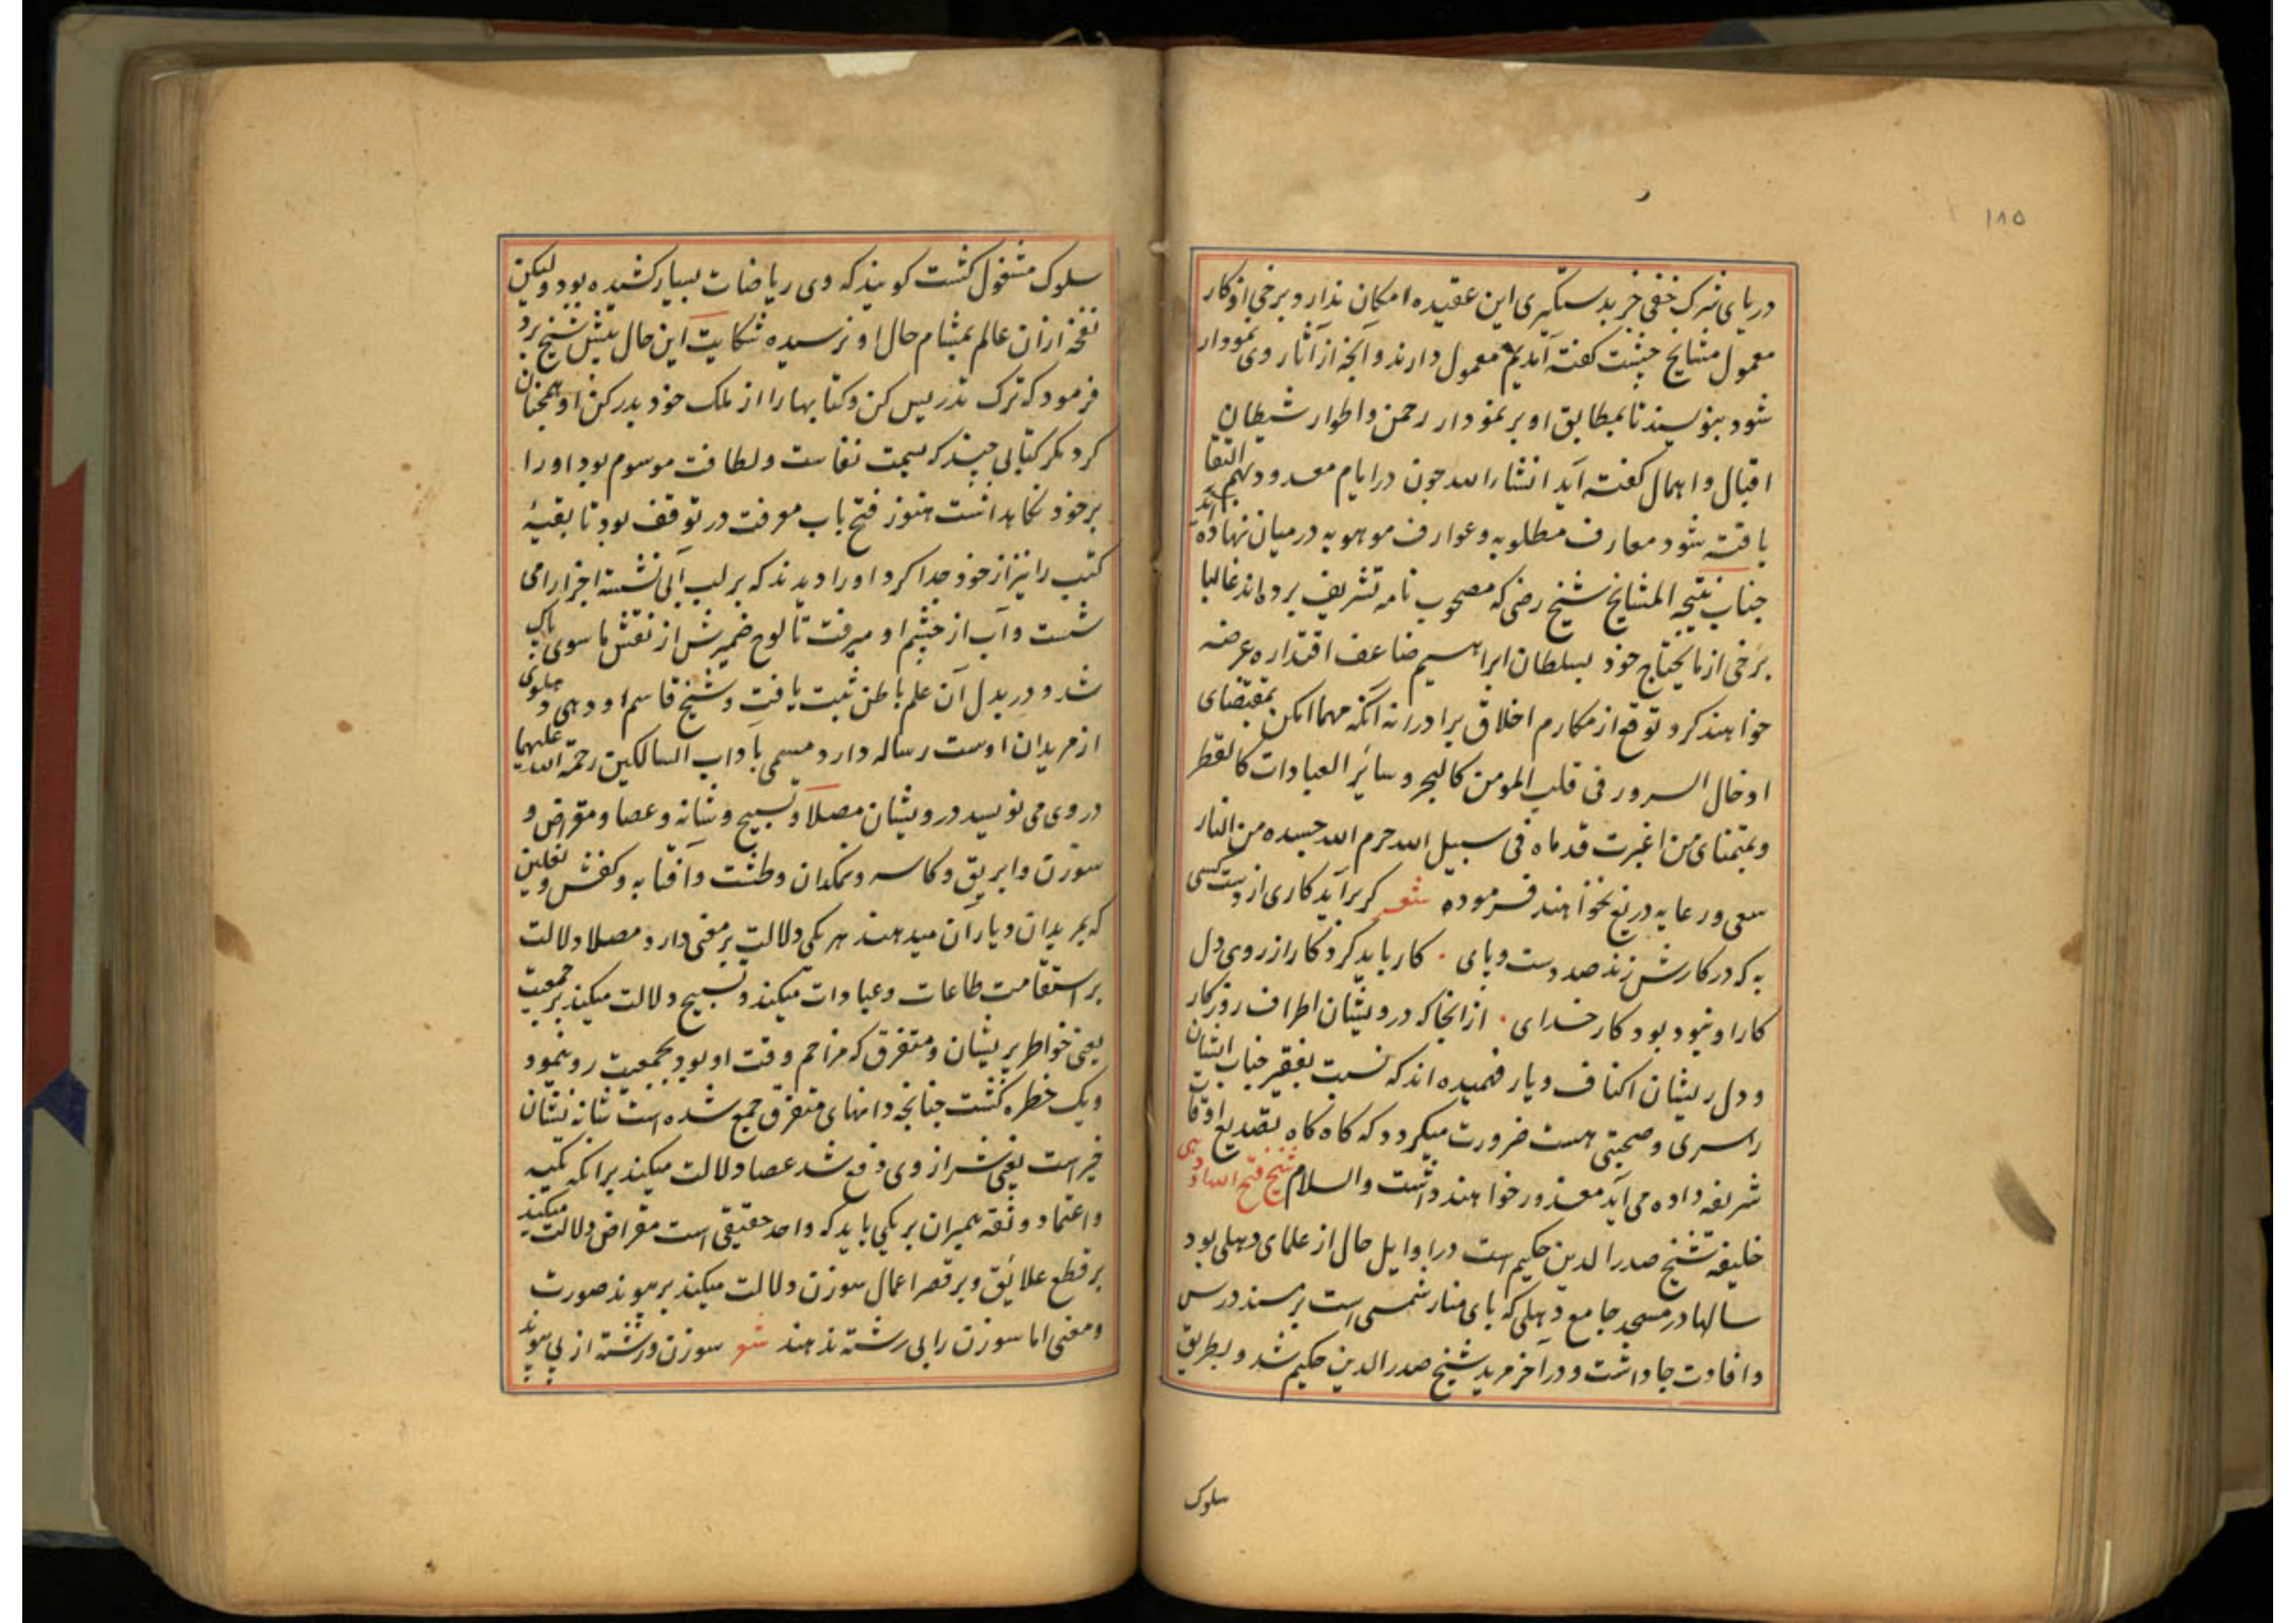 ۱۸۵
دریای شرک خفی خر بدستگیری این عقیده امکان ندارد و برخی اذکار
معمول مشایخ چشت گفته آمدیم معمول دارند و آنچه از آثار وی نمودار
شود بنویسند تا بمطابق او بر نمودار رحمن و اطوار شیطان
اقبال و اهمال گفته آید انشاءالله چون در ایام معدود بهم التقا
یافته شود معارف مطلوبه و عوارف موهوبه در میان نهاده آید
جناب نتیجه المشایخ شیخ رضی که مصحوب نامه تشریف برده‌اند غالبا
برخی از مایحتاج خود بسلطان ابراهیم ضاعف اقتداره عرضه
خواهند کرد توقع از مکارم اخلاق برادرانه آنکه مهما امکن بمقتضای
ادخال السرور فی قلب المومن کالبحر و سائر العبادات کالقطر
و بتمنای من اغبرت قدماه فی سبیل الله حرم الله جسده من النار
سعی و رعایه دریغ نخواهند فرموده شعر کر برآید کاری از دست کسی
به که در کارش زند صد دست و پای . کار باید کرد کار از روی دل
کار او نبود بود کار خدای . از انجا که درویشان اطراف روزکار
و دل ریشان اکناف دیار فهمیده‌اند که نسبت بفقیر جناب ایشان
راسری و صحبتی هست ضرورت میکردد که کاه کاه بتصدیع اوقات
شریفه داده می‌آید معذور خواهند داشت والسلام شیخ فتح الله اودهی
خلیفه شیخ صدرالدین حکیم است در اوایل حال از علمای دهلی بود
سالها در مسجد جامع دهلی که پای منار شمسی است بر مسند درس
و افادت جا داشت و در آخر مرید شیخ صدرالدین حکیم شد و بطریق
سلوک
سلوک مشغول کشت کویند که وی ریاضات بسیار کشیده بود ولیکن
نفخه از ان عالم بمشام حال او نرسیده شکایت این حال پیش شیخ برد
فرمود که ترک تدریس کن و کتابها را از ملک خود بدر کن او همچنان
کرد مکر کتابی چند که بسمت نفاست و لطافت موسوم بود او را
بر خود نکاهداشت هنوز فتح باب معرفت در توقف بود تا بقیهٔ
کتب را نیز از خود جدا کرد او را دیدند که بر لب آبی نشسته اجزا را می
شست و آب از چشم او میرفت تا لوح ضمیرش از نقش ما سوی پاک
شد و در بدل آن علم باطن ثبت یافت و شیخ قاسم اودهی
از مریدان اوست رساله دارد مسمی بآداب السالکین رحمة الله علیهما
در وی می نویسد درویشان مصلا و تسبیح و شانه و عصا و مقراض و
سوزن و ابریق و کاسه و نمکدان و طشت و آفتابه و کفش و نعلین
که بمریدان و یاران میدهند هر یکی دلالت بر معنی دارد مصلا دلالت
بر استقامت طاعات و عبادات میکند و تسبیح دلالت میکند بر جمعیت
یعنی خواطر پریشان و متفرق که مزاحم وقت او بود بجمعیت رو نمود
و یک خطره کشت چنانچه دانهای متفرق جمع شده است شانه نشان
خیر است یعنی شر از وی دفع شد عصا دلالت میکند بر انکه تکیه
و اعتماد و ثقه همیران بر یکی باید که واحد حقیقی است مقراض دلالت میکند
بر قطع علائق و بر قصر اعمال سوزن دلالت میکند بر پیوند صورت
و معنی اما سوزن را بی رشته ندهند شعر سوزن و رشته از پی پیوند